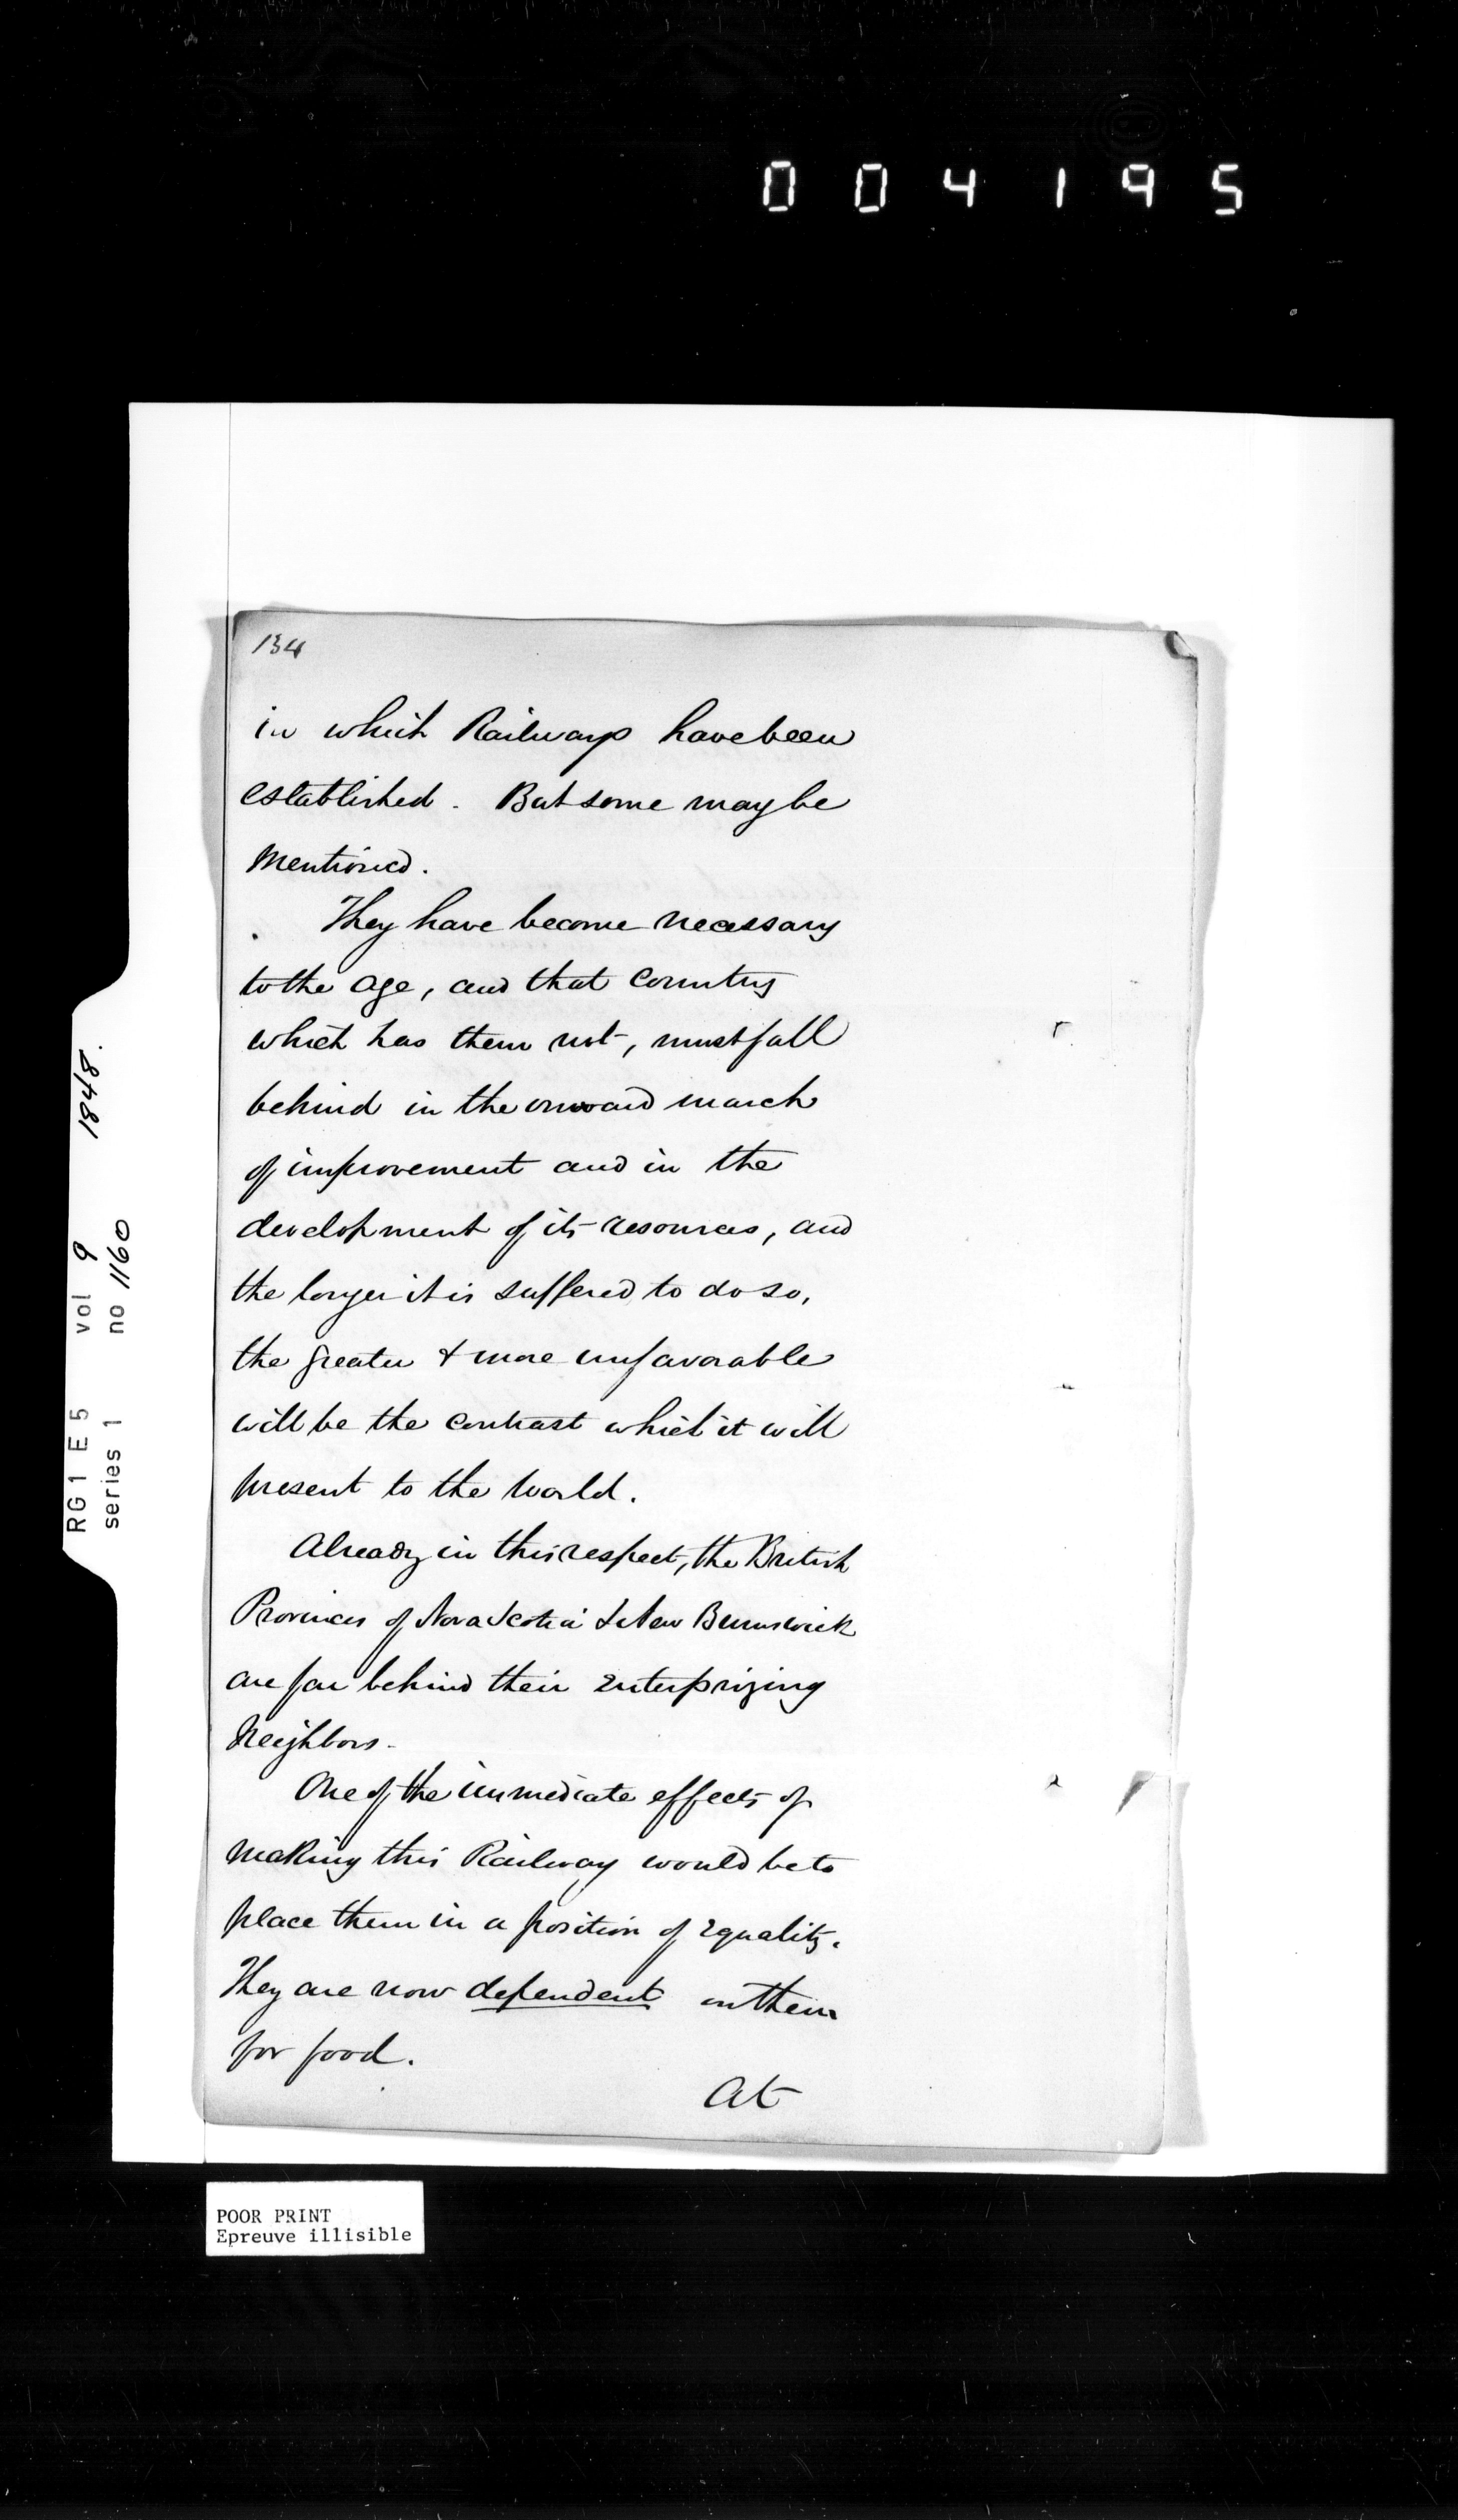 004195
134
in which Railways have been
established. But some may be
mentioned.
They have become necessary
to the age, and that Country
which has them not, must fall
behind in the onward march
of improvement and in the
development of its resources, and
the longer it is suffered to do so,
the greater & more unfavorable
will be the contrast which it will
present to the World.
Already in this respect, the British
Provinces of Nova Scotia & New Brunswick
are far behind their enterprizing
Neighbors.
One of the immediate effects of
making this Railway would be to
place them in a position of equality.
They are now dependent on them
for food.
At
RG 1 E 5 vol 9 1848.
series 1 no 1160
POOR PRINT
Epreuve illisible